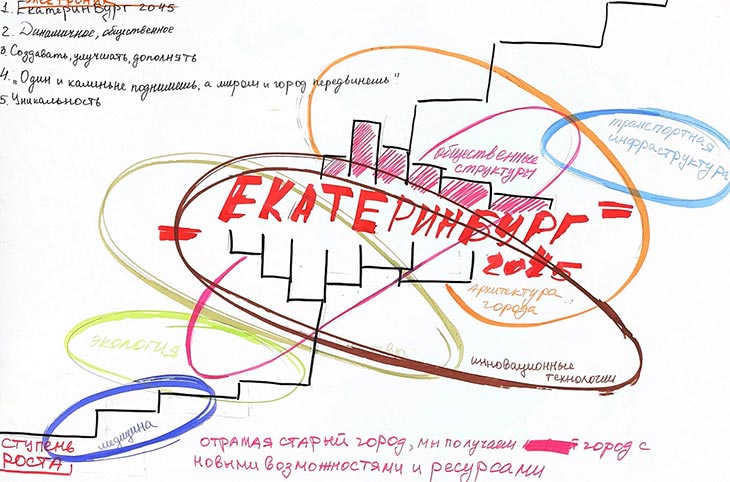 1. Екатеринбург 2045
2. Динамичное, общественное
3. Создавать, улучшать, дополнять
4. „Один и каминьне поднимешь, а миром и город передвинешь"
5. Уникальность
транспортная
инфраструктура
общественные
структуры
- ЕКАТЕРИНБУРГ =
2045
архитектура
города
экология
инновационные
технологии
медицина
СТУПЕНЬ
РОСТА
отрамая старый город, мы получаем город с
новыми возможностями и ресурсами